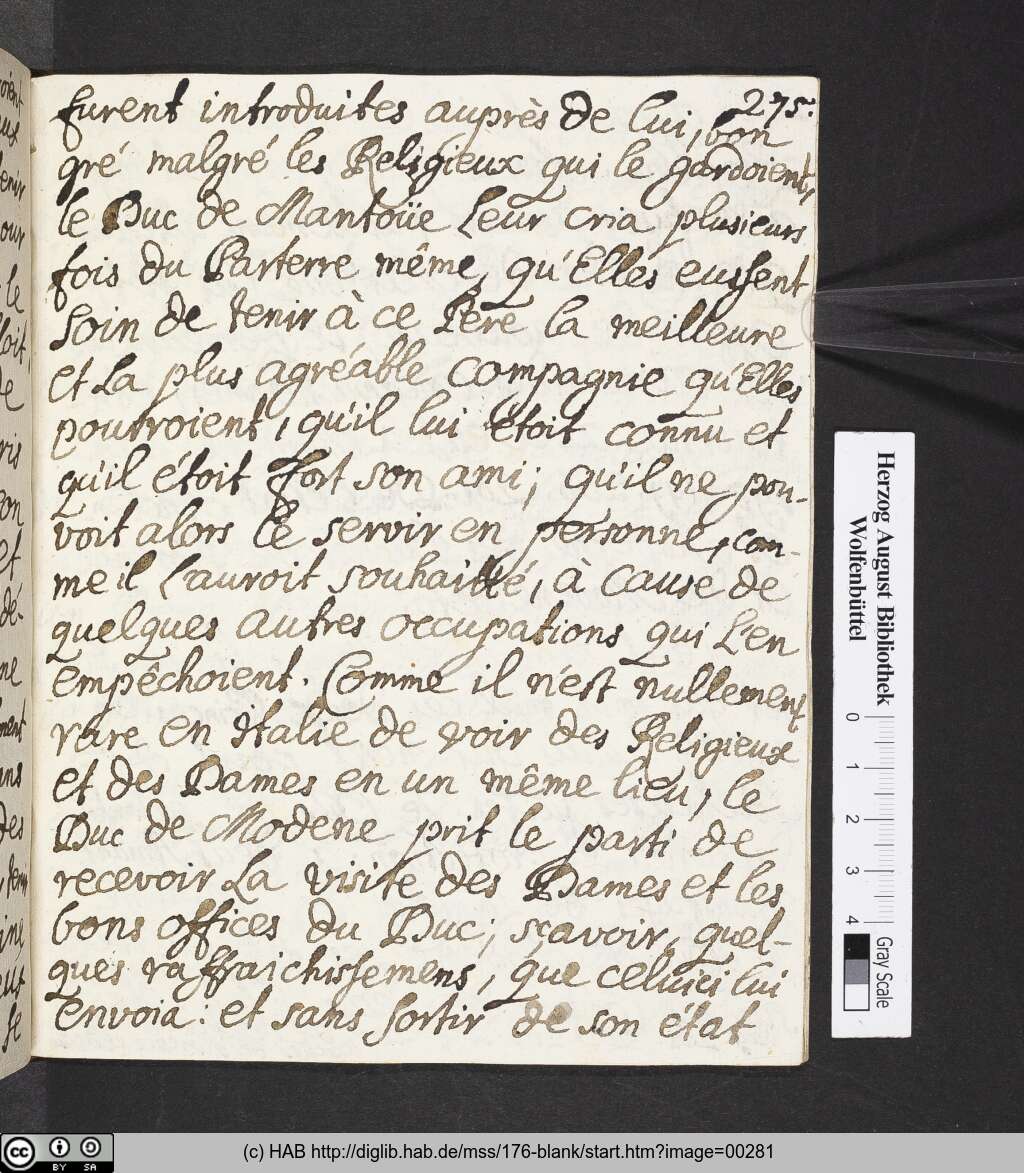 275.
furent introduites auprès de lui, bon
gré malgré les Religieux qui le gardoient,
le Duc de Mantoüe leur cria plusieurs
fois du Parterre même, qu'Elles eussent
soin de tenir à ce Pere la meilleure
et la plus agréable compagnie qu'Elles
pourroient, qu'il lui étoit connu et
qu'il étoit fort son ami; qu'il ne pou-
voit alors le servir en personne, com-
me il l'auroit souhaitté, à cause de
quelques autres occupations qui l'en
empêchoient. Comme il n'est nullement
rare en Italie de voir des Religieux
et des Dames en un même lieu, le
Duc de Modene prit le parti de
recevoir la visite des Dames et les
bons offices du Duc; sçavoir, quel-
ques raffraichissemens, que celuici lui
envoia: et sans sortir de son état
Herzog August Bibliothek
Wolfenbüttel
0 1 2 3 4
Gray Scale
cc BY SA
(c) HAB http://diglib.hab.de/mss/176-blank/start.htm?image=00281